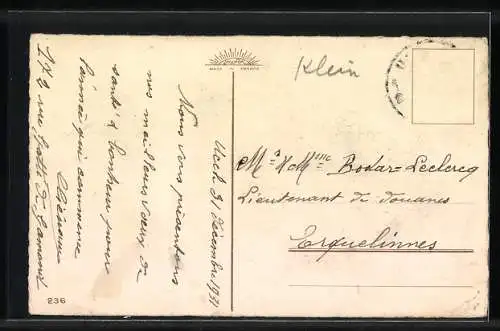 Klein
Uccle 31 décembre 1931
Nous vous présentons
nos meilleurs vœux de
santé & bonheur pour
l'année qui commence
rue Gatti de Gamond
Mr & Mme Bodar=Leclercq
Lieutenant de douanes
Erquelinnes
236